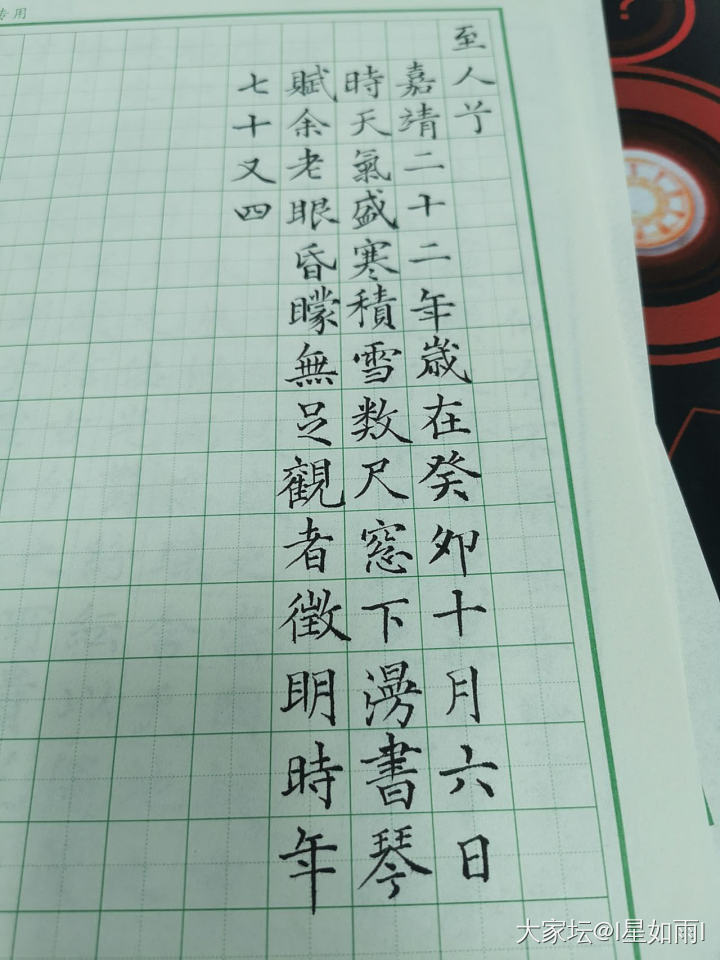 专用
至人兮
嘉靖二十二年歳在癸卯十月六日
時天氣盛寒積雪数尺窓下漫書琴
賦余老眼昏矇無足觀者徵明時年
七十又四
大家坛@l星如雨l